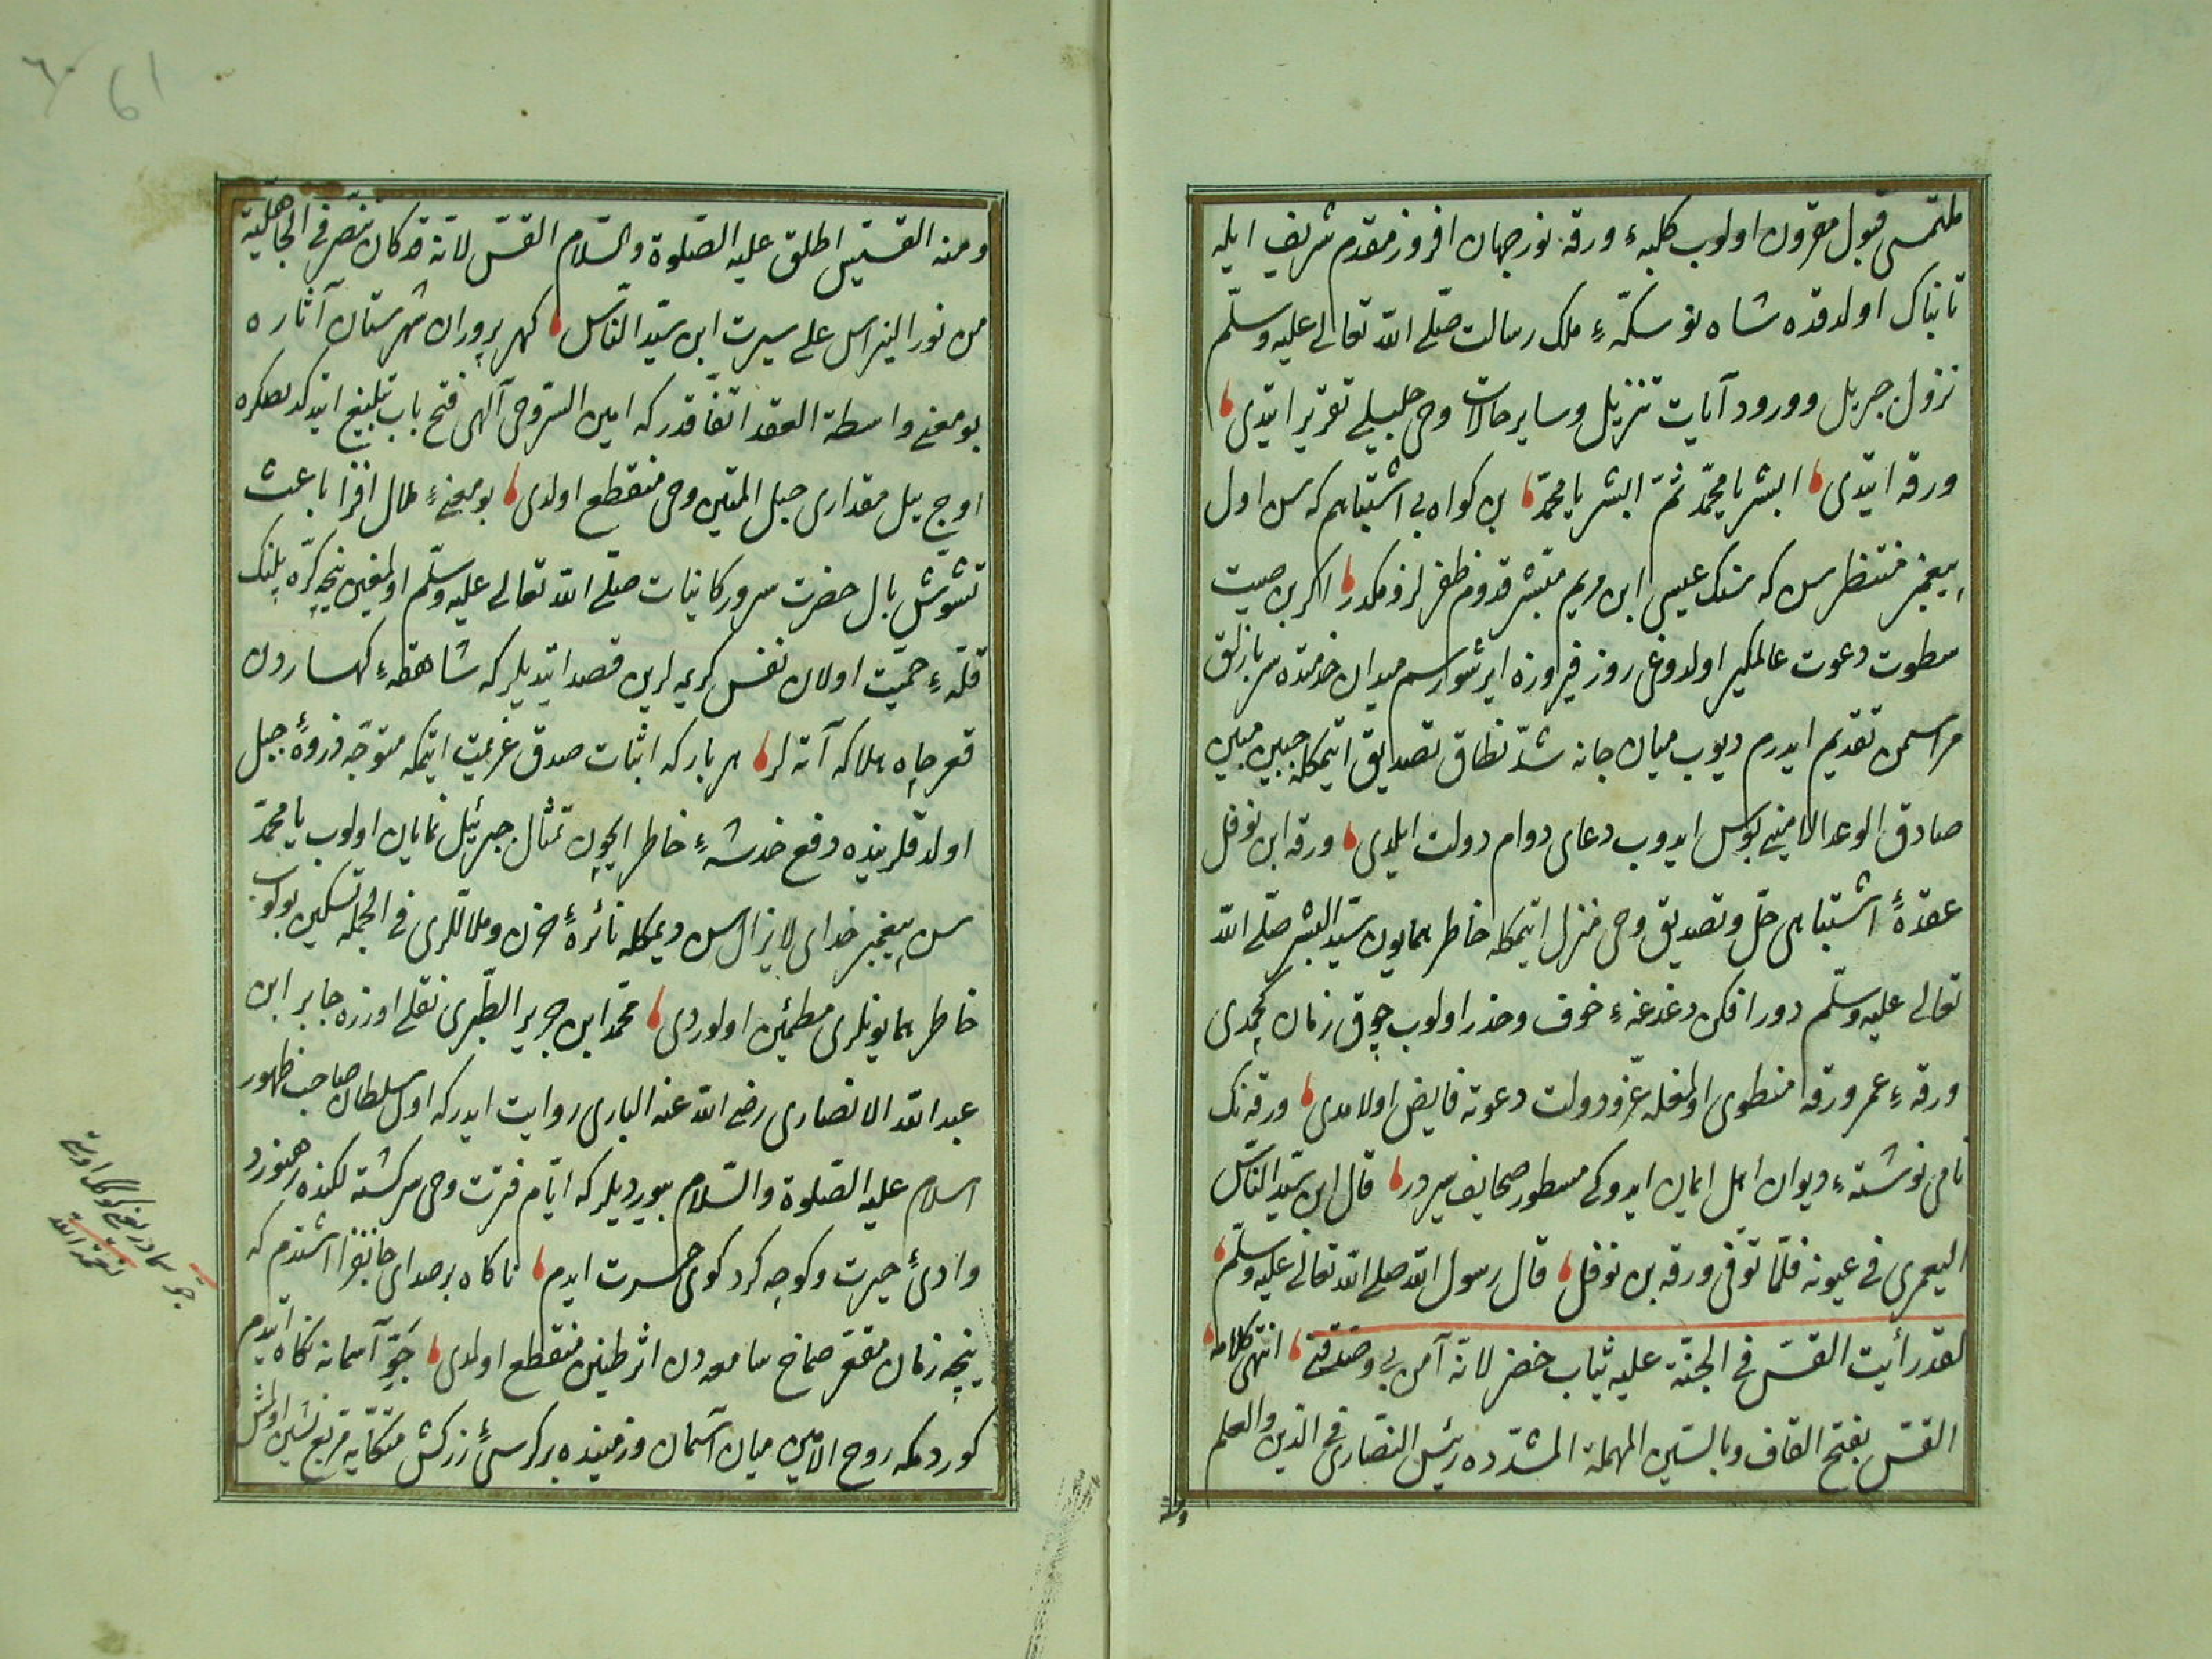 ملتمسی قبول مقرون اولوب کلبهٔ ورقه نور جهان افروز مقدم شریف ایله
تابناك اولدقده شاه نو سکّهٔ ملك رسالت صلّی اللّه تعالی علیه وسلّم
نزول جبریل وورود آیات تنزیل وسایر حالات وحی جلیلی تقریر ایتدی
ورقه ایتدی ابشر یا محمّد ثمّ ابشر یا محمّد بن کواه بی اشتباهم که سن اول
پیغمبر منتظرسن که سنك عیسی ابن مریم مبشّر قدوم ظفر لزومکدر اکر بن صیت
سطوت دعوت عالمکیر اولدوغی روز فیروزه ایرشورسم میدان خدمتده سربازلق
مراسمن تقدیم ایدرم دیوب میان جانه شدّ نطاق تصدیق ایتمکله جبین مبین
صادق الوعد الامینی بوس ایدوب دعای دوام دولت ایلدی ورقه ابن نوفل
عقدهٔ اشتباهی حلّ وتصدیق وحی منزل ایتمکله خاطر همایون سیّد البشر صلّی اللّه
تعالی علیه وسلّم دور افکن دغدغهٔ خوف وحذر اولوب چوق زمان کچمدی
ورقهٔ عمر ورقه منطوی اولمغله عزّ ودولت دعوته فایض اولامدی ورقه نك
نامی نوشتهٔ دیوان اهل ایمان ایدوکی مسطور صحایف سیردر قال ابن سیّد النّاس
الیعمری فی عیونه فلمّا توفّی ورقه بن نوفل قال رسول اللّه صلی اللّه تعالی علیه وسلّم
لقد رأیت القسّ فی الجنّة علیه ثیاب خضر لانّه آمن بی وصدّقنی انتهی کلامه
القسّ بفتح القاف وبالسّین المهملة المشدّده رئیس النّصاری فی الدّین والعلم
ومنه
61
ومنه القسّیس اطلق علیه الصّلوة والسّلام القسّ لانّه قد کان تنصّر فی الجاهلیّة
من نور النبراس علی سیرت ابن سیّد النّاس کهر پروران شهرستان آثاره
بو معنی واسطة العقد اتّفاقدر که امین السّر وحی آلهی فتح باب تبلیغ ایتدکدنصکره
اوچ ییل مقداری حبل المتین وحی منقطع اولدی بو معنیٔ ملال افزا باعث
تشوّش بال حضرت سرور کاینات صلّی اللّه تعالی علیه وسلّم اولمغین نیچه کرّه پلنك
قلّهٔ حمیّت اولان نفس کریمه لرین قصد ایتدیلر که شاهقهٔ کهساردن
قعر چاه هلاکه آته لر هر بار که اثبات صدق عزیمت ایتمکه متوجّه ذروهٔ جبل
اولدقلرینده دفع خدشهٔ خاطر ایچون تمثال جبرئیل نمایان اولوب یا محمّد
سن پیغمبر خدای لایزال سن دیمکله نائرهٔ حزن وملاللری فی الجمله تسکین بولوب
خاطر همایونلری مطمئین اولوردی محمّد ابن جریر الطّبری نقلی اوزره جابر ابن
عبد اللّه الانصاری رضی اللّه عنه الباری روایت ایدر که اول سلطان صاحب ظهور
اسلام علیه الصّلوة والسّلام بیوردیلر که ایّام فترت وحی سرکشته لکنده رهنورد
وادیٔ حیرت وکوچه کرد کوی حسرت ایدم ناکاه بر صدای جانفزا اشتدم که
نیچه زمان مقعّر صماخ سامعه دن اثر طنین منقطع اولمدی جوّ آسمانه نکاه ایتدم
کوردمکه روح الامین میان آسمان وزمینده بر کرسیٔ زرکش متّکایه مربّع نشین اولمش
جوّ
نعمة اللّه